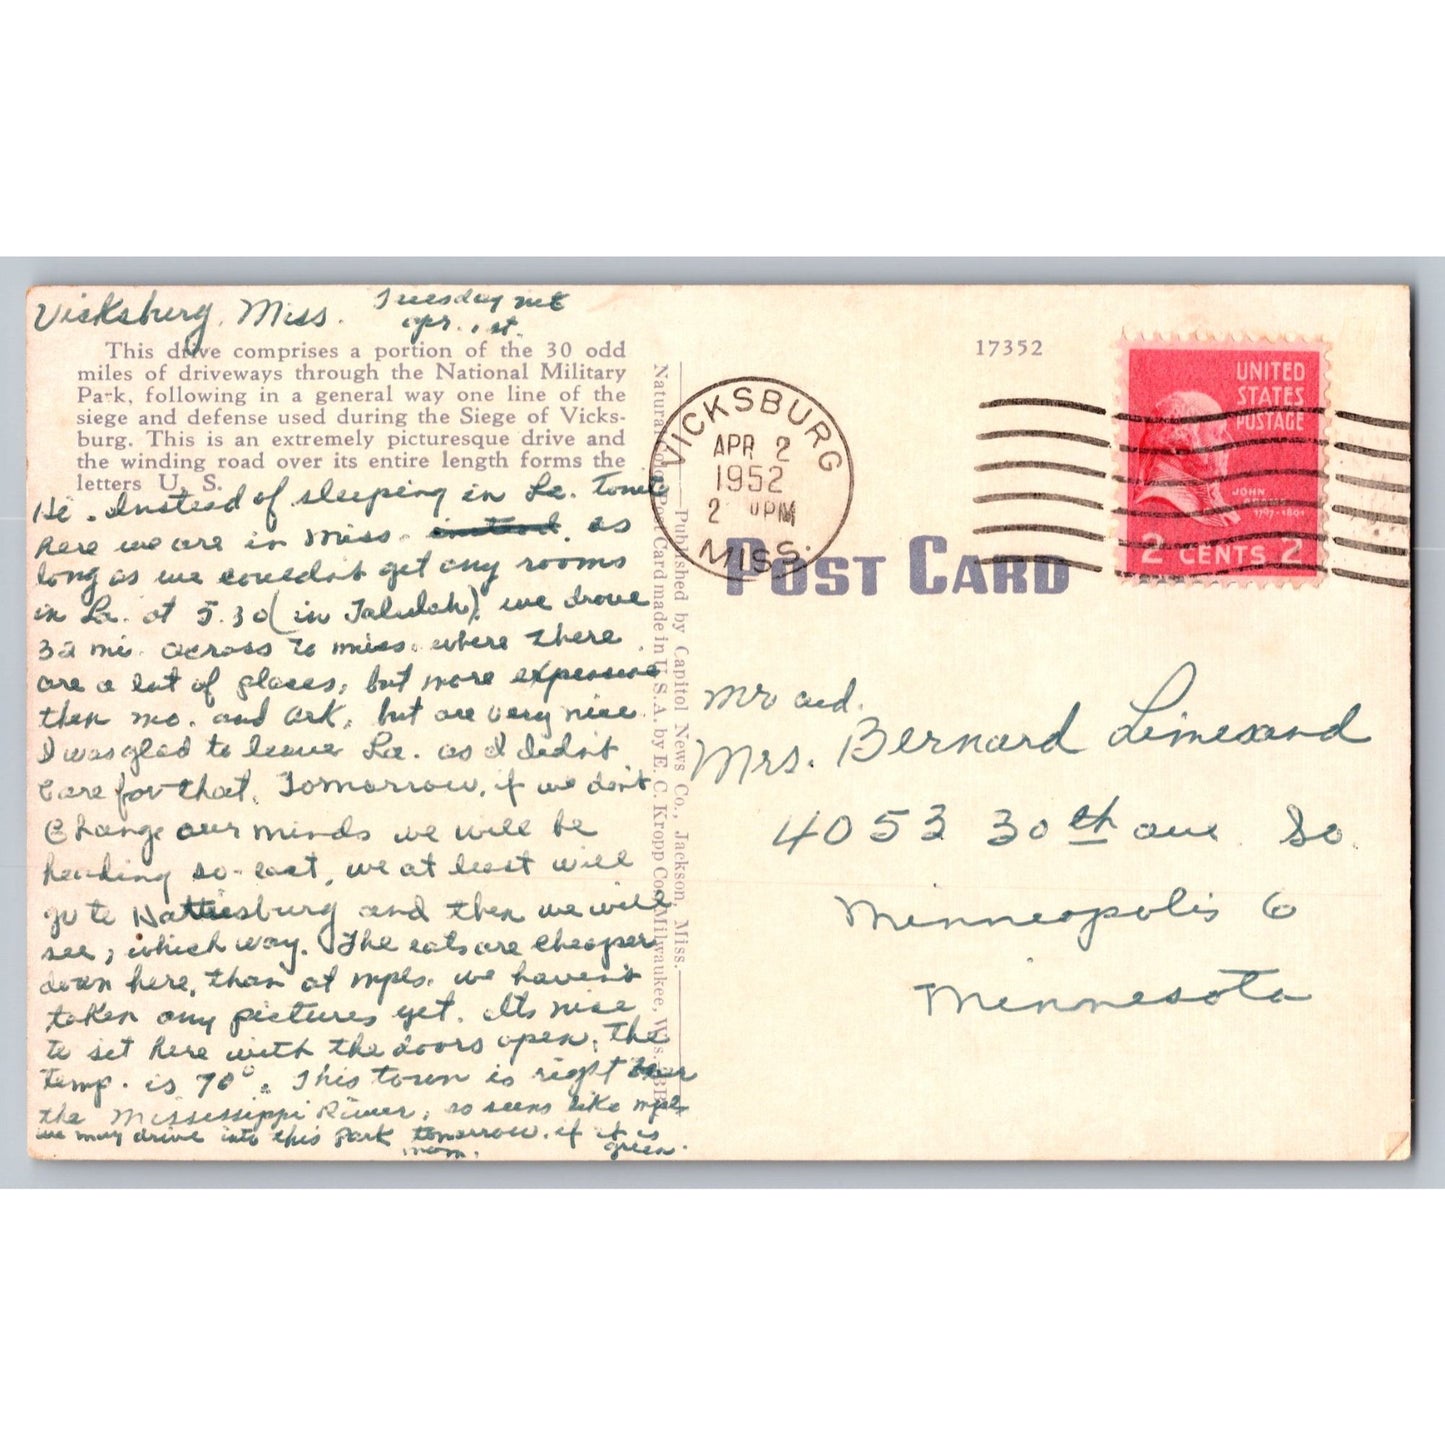 Vicksburg, Miss. Tuesday nite
Apr. 1st.
This drive comprises a portion of the 30 odd
miles of driveways through the National Military
Park, following in a general way one line of the
siege and defense used during the Siege of Vicks-
burg. This is an extremely picturesque drive and
the winding road over its entire length forms the
letters U. S.
Hi. Instead of sleeping in La. Tonite
here we are in Miss. as
long as we couldn't get any rooms
in La. at 5.30 (in Talulah), we drove
32 mi. across to Miss. where there
are a lot of places, but more expensive
then Mo. and Ark, but are very nice.
I was glad to leave La. as I didn't
care for that. Tomorrow, if we don't
change our minds we will be
heading so-east, we at least will
go to Hattiesburg and then we will
see, which way. The eats are cheaper
down here, than at Mpls. we haven't
taken any pictures yet. Its nice
to set here with the doors open, the
temp. is 70°. This town is right near
the Mississippi River, so seems like Mpls
we may drive into this park tomorrow, if it is
green.
mom.
Natural Color Post Card made in U. S. A. by E. C. Kropp Co., Milwaukee, Wis.
Published by Capitol News Co., Jackson, Miss.
17352
VICKSBURG
APR 2
1952
2 PM
MISS.
UNITED
STATES
POSTAGE
JOHN
2 CENTS 2
POST CARD
Mr and.
Mrs. Bernard Limesand
4053 30th ave So.
Minneapolis 6
Minnesota